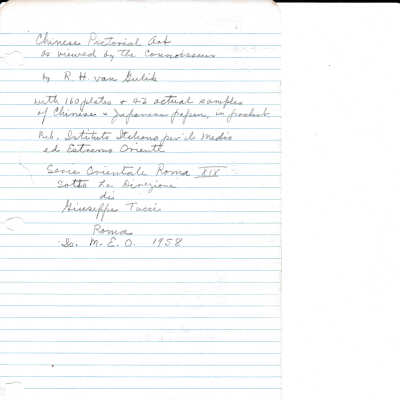 Chinese Pictorial Art
as viewed by the Connoisseur
by R. H. van Gulik
with 160 plates & 42 actual samples
of Chinese & Japanese paper, in pocket
Pub. Istituto Italiano per il Medio
ed Estremo Oriente
Serie Orientale Roma XIX
Sotto La Direzione
di
Giuseppe Tucci
Roma
Is. M. E. O. 1958